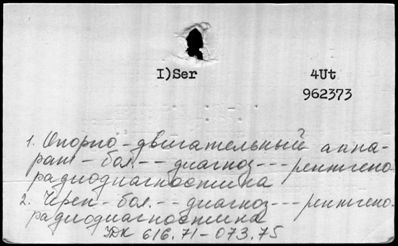 I)Ser 4Ut
962373
1. Опорно-двигательный аппа-
рат - бол.-- диагноз --- рентгено-
радиодиагностика
2. Череп - бол.-- диагноз --- рентгено-
радиодиагностика
УДК 616.71-073.75